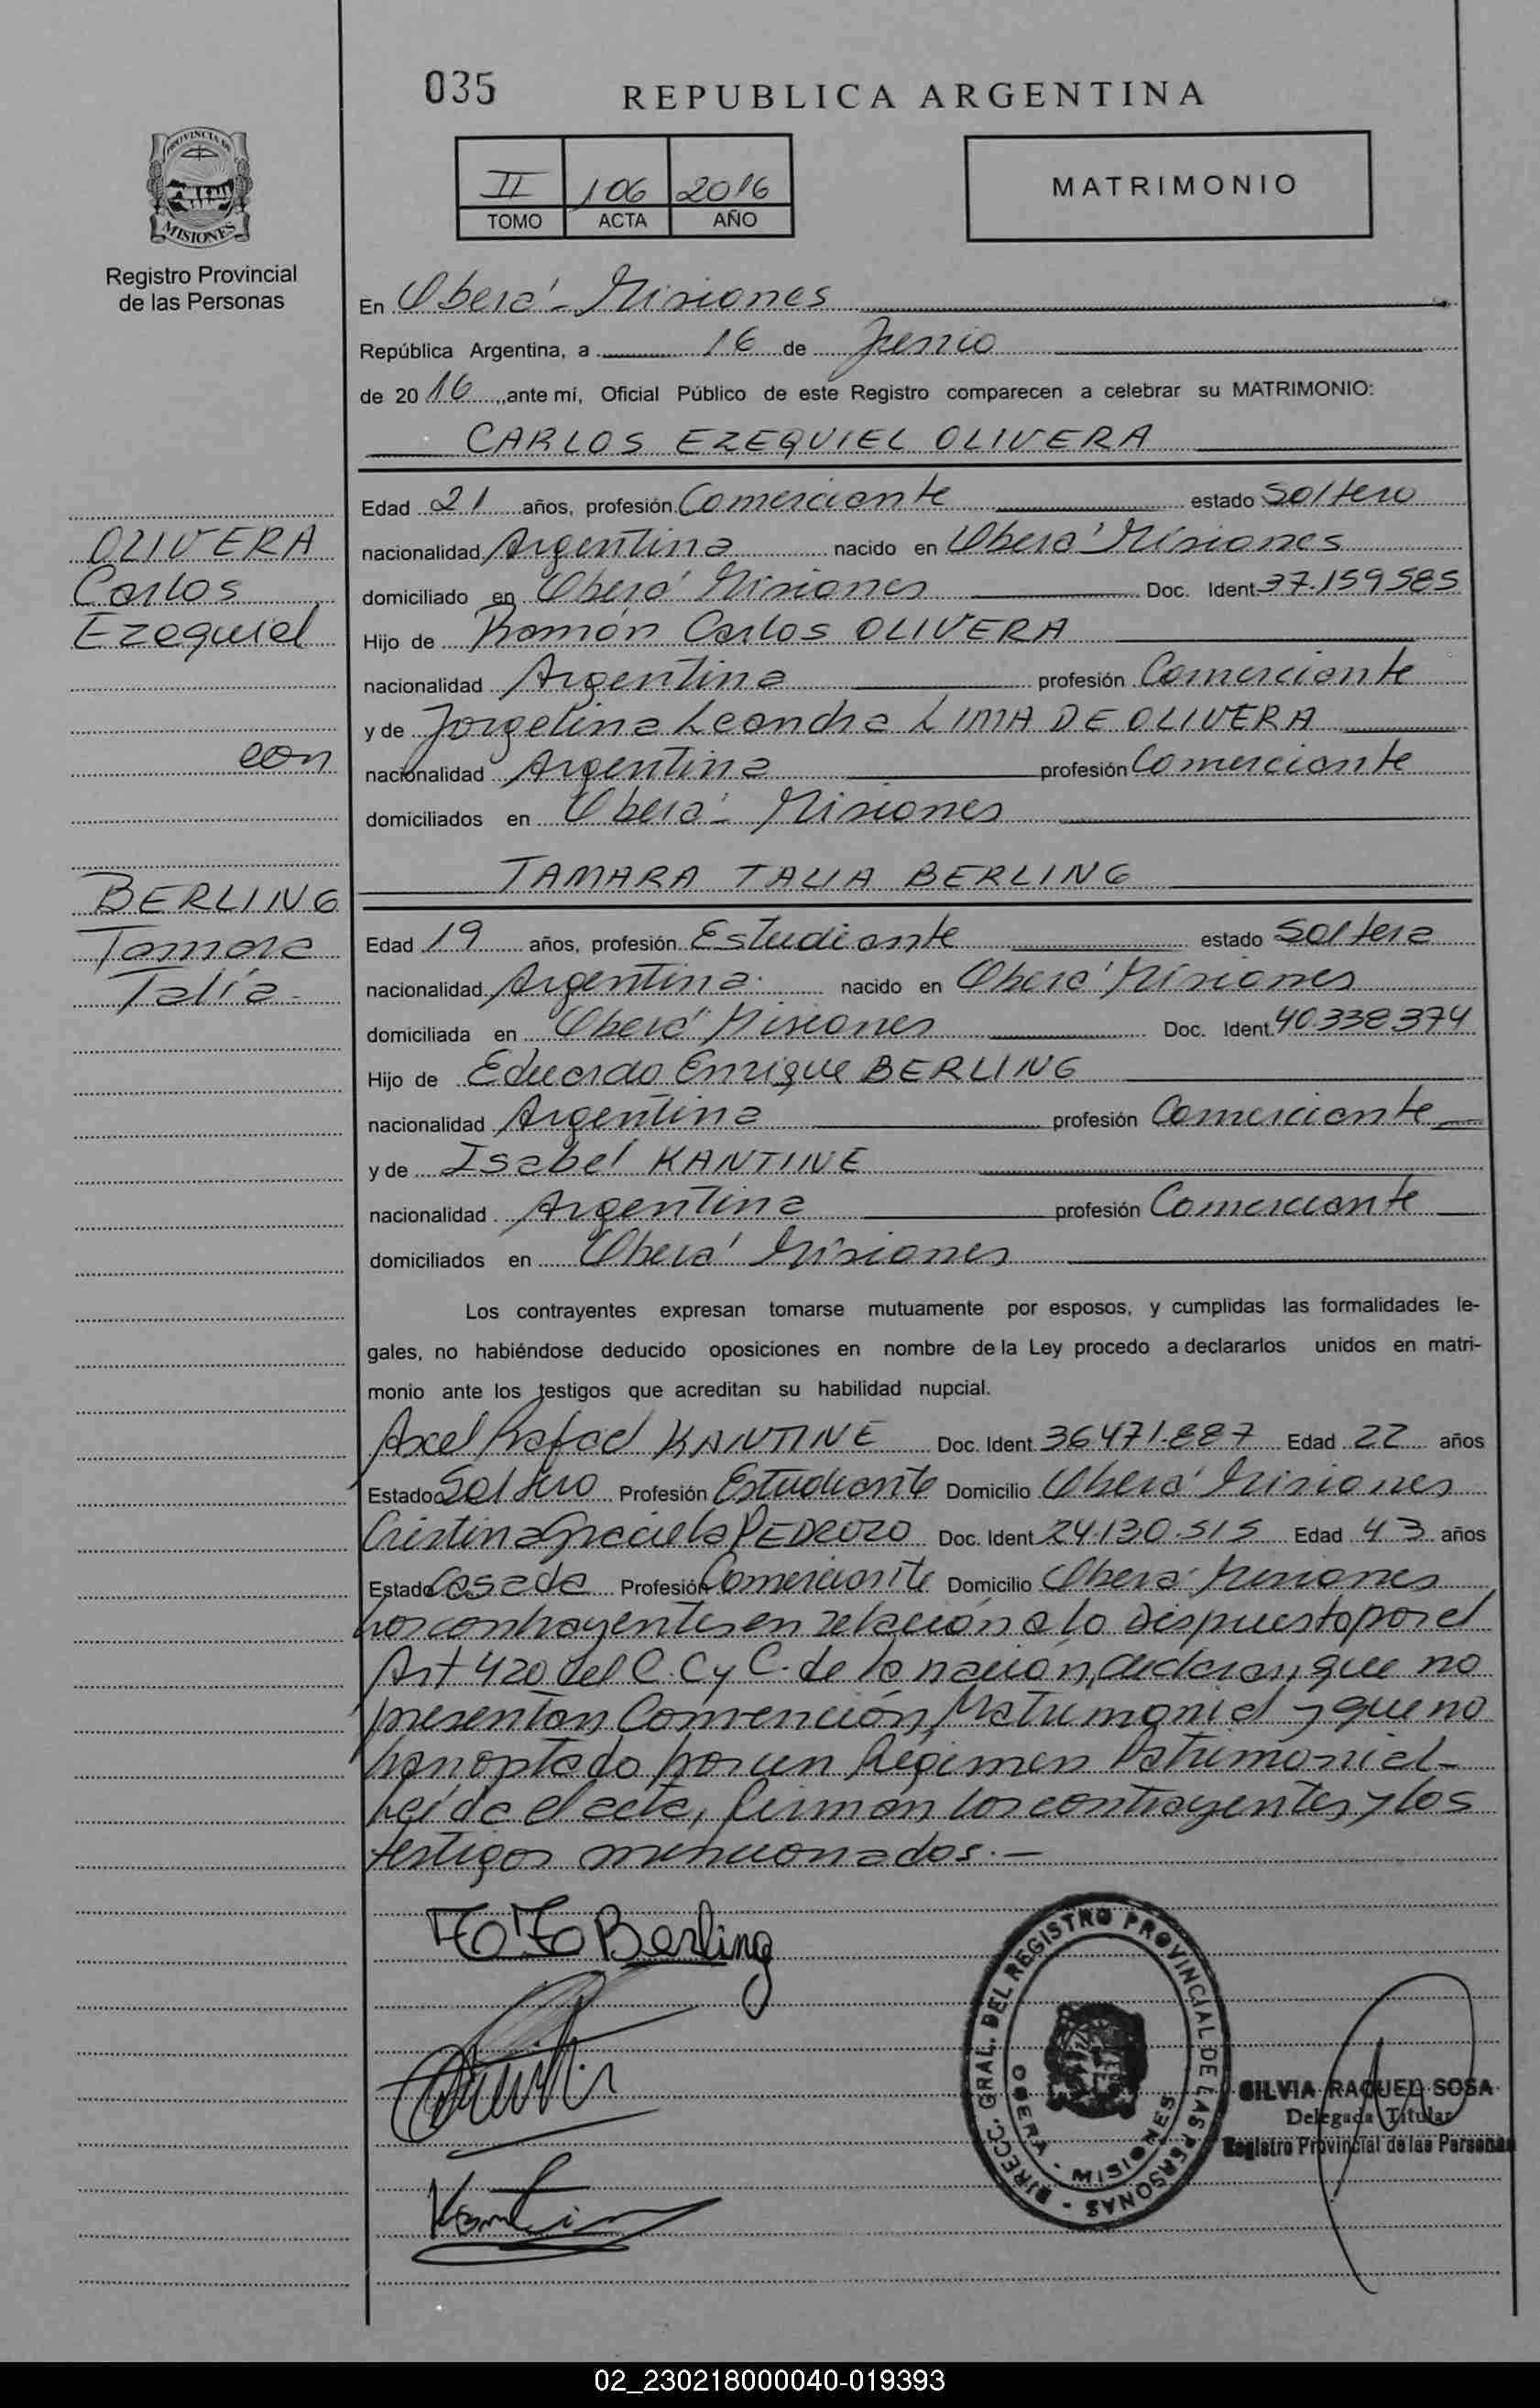 035
REPUBLICA ARGENTINA
PROVINCIA DE
MISIONES
Registro Provincial
de las Personas
II 106 2016
TOMO ACTA AÑO
MATRIMONIO
En Oberá - Misiones
República Argentina, a 16 de Junio
de 2016, ante mí, Oficial Público de este Registro comparecen a celebrar su MATRIMONIO:
CARLOS EZEQUIEL OLIVERA
Edad 21 años, profesión Comerciante estado Soltero
nacionalidad Argentina nacido en Oberá Misiones
domiciliado en Oberá Misiones Doc. Ident. 37.159.585
Hijo de Ramón Carlos OLIVERA
nacionalidad Argentina profesión Comerciante
y de Jorgelina Leandra LIMA DE OLIVERA
nacionalidad Argentina profesión Comerciante
domiciliados en Oberá - Misiones
OLIVERA
Carlos
Ezequiel
con
BERLING
Tamara
Talía.
TAMARA TALIA BERLING
Edad 19 años, profesión Estudiante estado Soltera
nacionalidad Argentina. nacido en Oberá Misiones
domiciliada en Oberá Misiones Doc. Ident. 40.338.374
Hijo de Eduardo Enrique BERLING
nacionalidad Argentina profesión Comerciante
y de Isabel KANTINE
nacionalidad Argentina profesión Comerciante
domiciliados en Oberá Misiones
Los contrayentes expresan tomarse mutuamente por esposos, y cumplidas las formalidades le-
gales, no habiéndose deducido oposiciones en nombre de la Ley procedo a declararlos unidos en matri-
monio ante los testigos que acreditan su habilidad nupcial.
Axel Rafael KANTINE Doc. Ident. 36.471.887 Edad 22 años
Estado Soltero Profesión Estudiante Domicilio Oberá Misiones
Cristina Graciela PEDROZO Doc. Ident. 24.130.515 Edad 43 años
Estado Casada Profesión Comerciante Domicilio Oberá Misiones
Los contrayentes en relación a lo dispuesto por el
Art 420 del C. C y C. de la nación, declaran, que no
presentan Convención Matrimonial y que no
han optado por un Régimen Patrimonial-
Leída el acta, firman los contrayentes y los
testigos mencionados.-
Berling
DIRECC. GRAL. DEL REGISTRO PROVINCIAL DE LAS PERSONAS
OBERÁ - MISIONES
SILVIA RAQUEL SOSA
Delegada Titular
Registro Provincial de las Personas
02_230218000040-019393